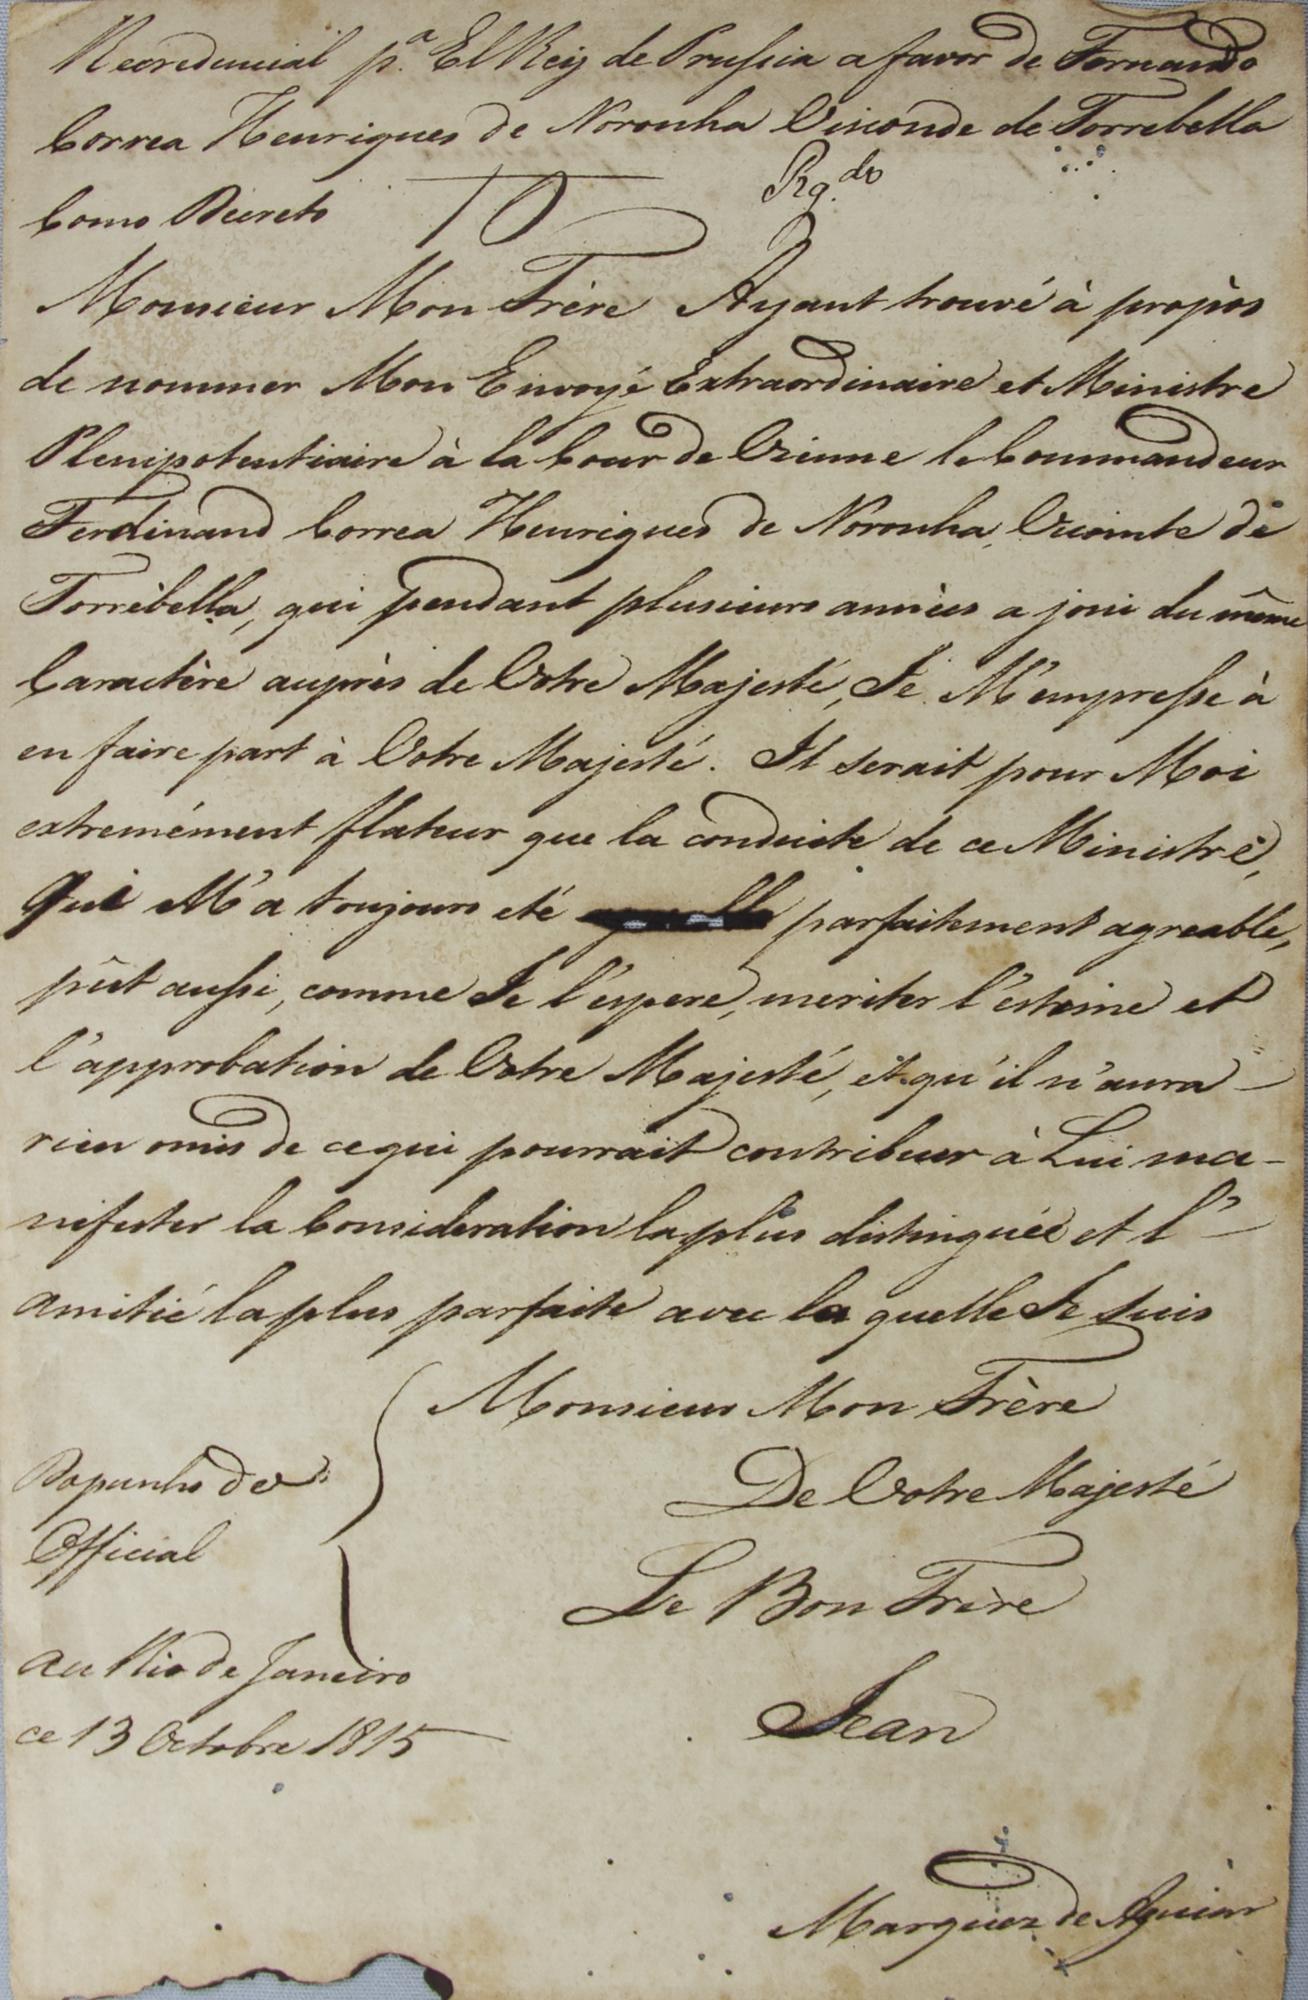 Recredencial p.ª El Rey de Prussia a favor de Fernando
Correa Henriques de Noronha Visconde de Torrebella
Rg.do
Como Decreto
Monsieur Mon Frère Ayant trouvé à propos
de nommer Mon Envoyé Extraordinaire et Ministre
Plenipotentiaire à la Cour de Vienne le Commandeur
Ferdinand Correa Henriques de Noronha, Vicomte de
Torrèbella, qui pendant plusieurs années a joui du même
Caractère auprès de Votre Majesté, Je M'empresse à
en faire part à Votre Majesté. Il serait pour Moi
extremément flateur que la conduite de ce Ministre,
qui M'a toujours eté parfaitement agreable,
pût aussi, comme Je l'espere, meriter l'estime et
l'approbation de Votre Majesté, et qu'il n'aura
rien omis de ce qui pourrait contribuer à Lui ma-
nifester la Consideration la plus distinguée et l'
amitié la plus parfaite avec la quelle Je suis
Monsieur Mon Frère
De Votre Majesté
Le Bon Frère
Jean
Official
Au Rio de Janeiro
ce 13 Octobre 1815
Marquez de Aguiar